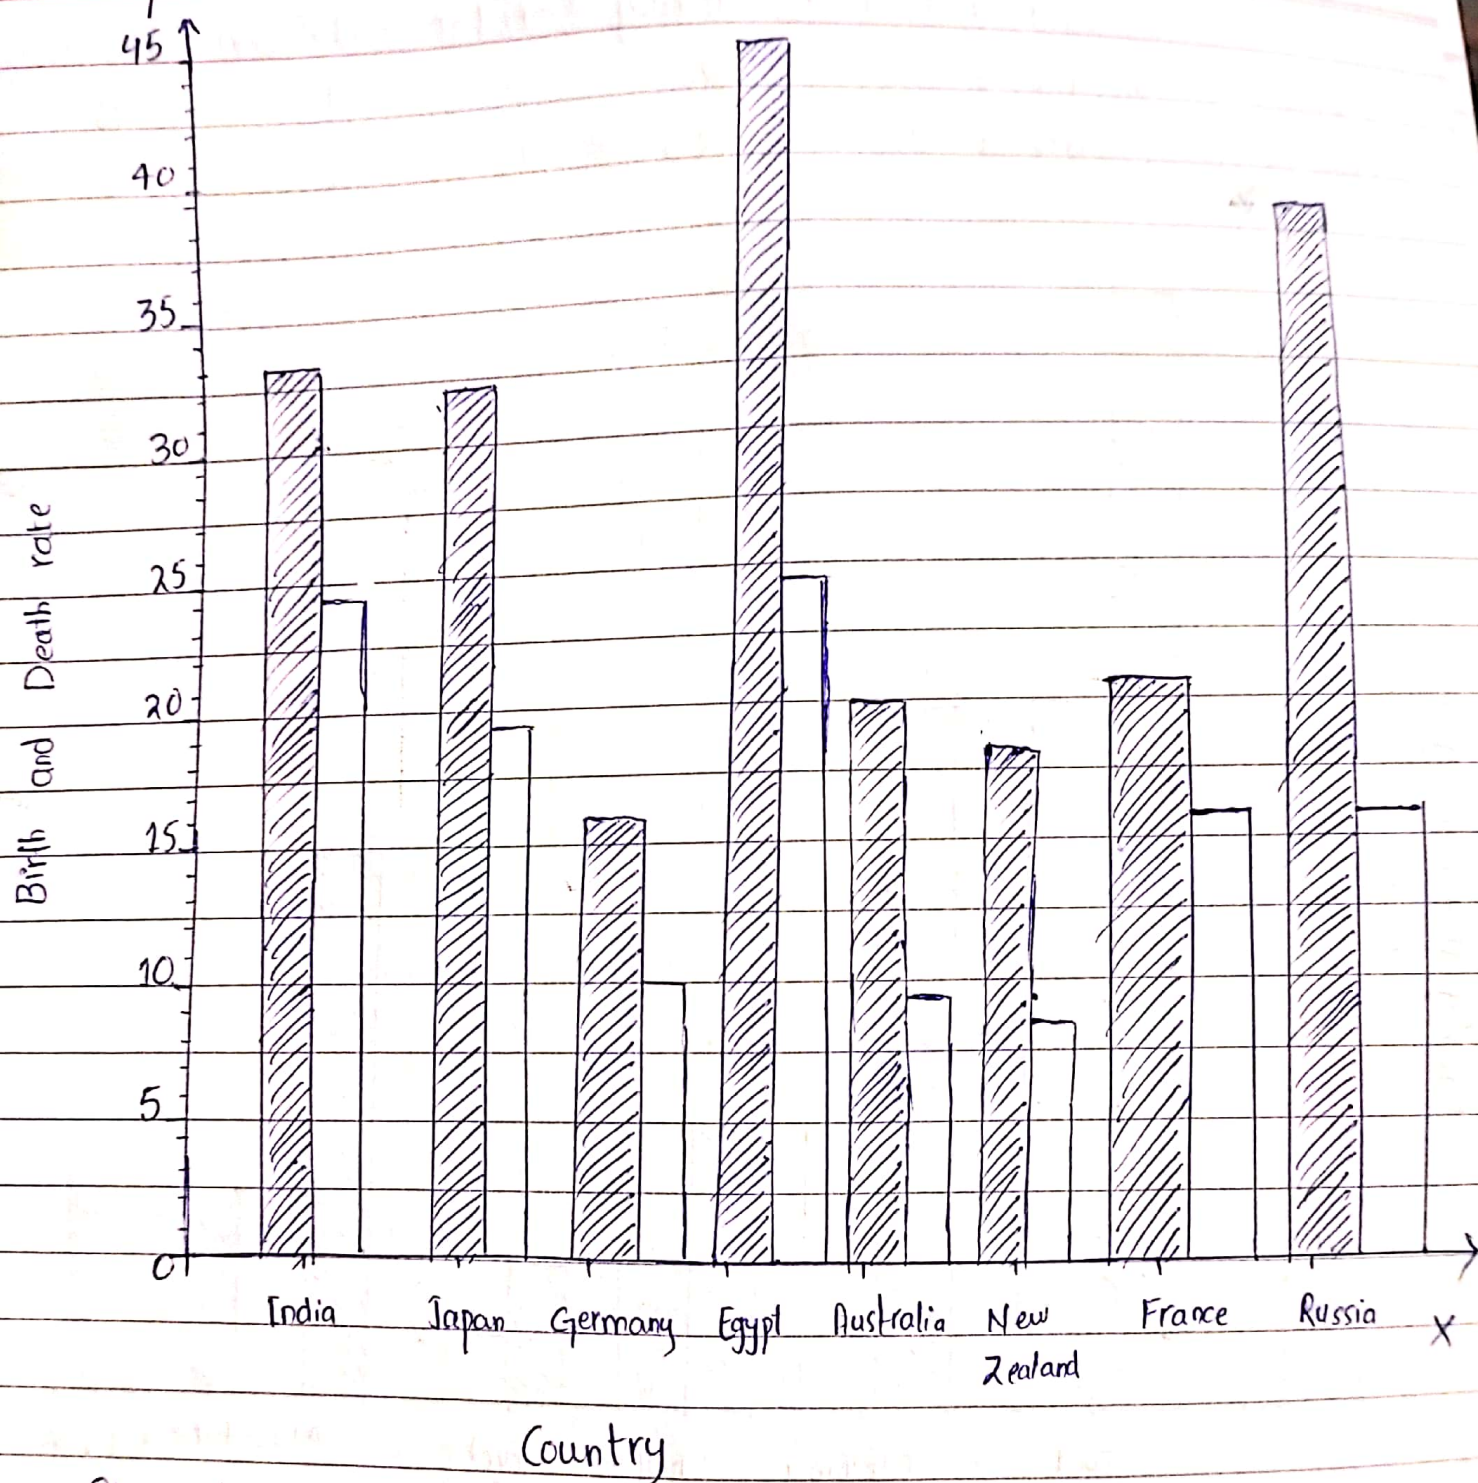 45
40
35
30
25
20
15
10
5
0
Birth and Death rate
India Japan Germany Egypt Australia New Zealand France Russia
X
Country